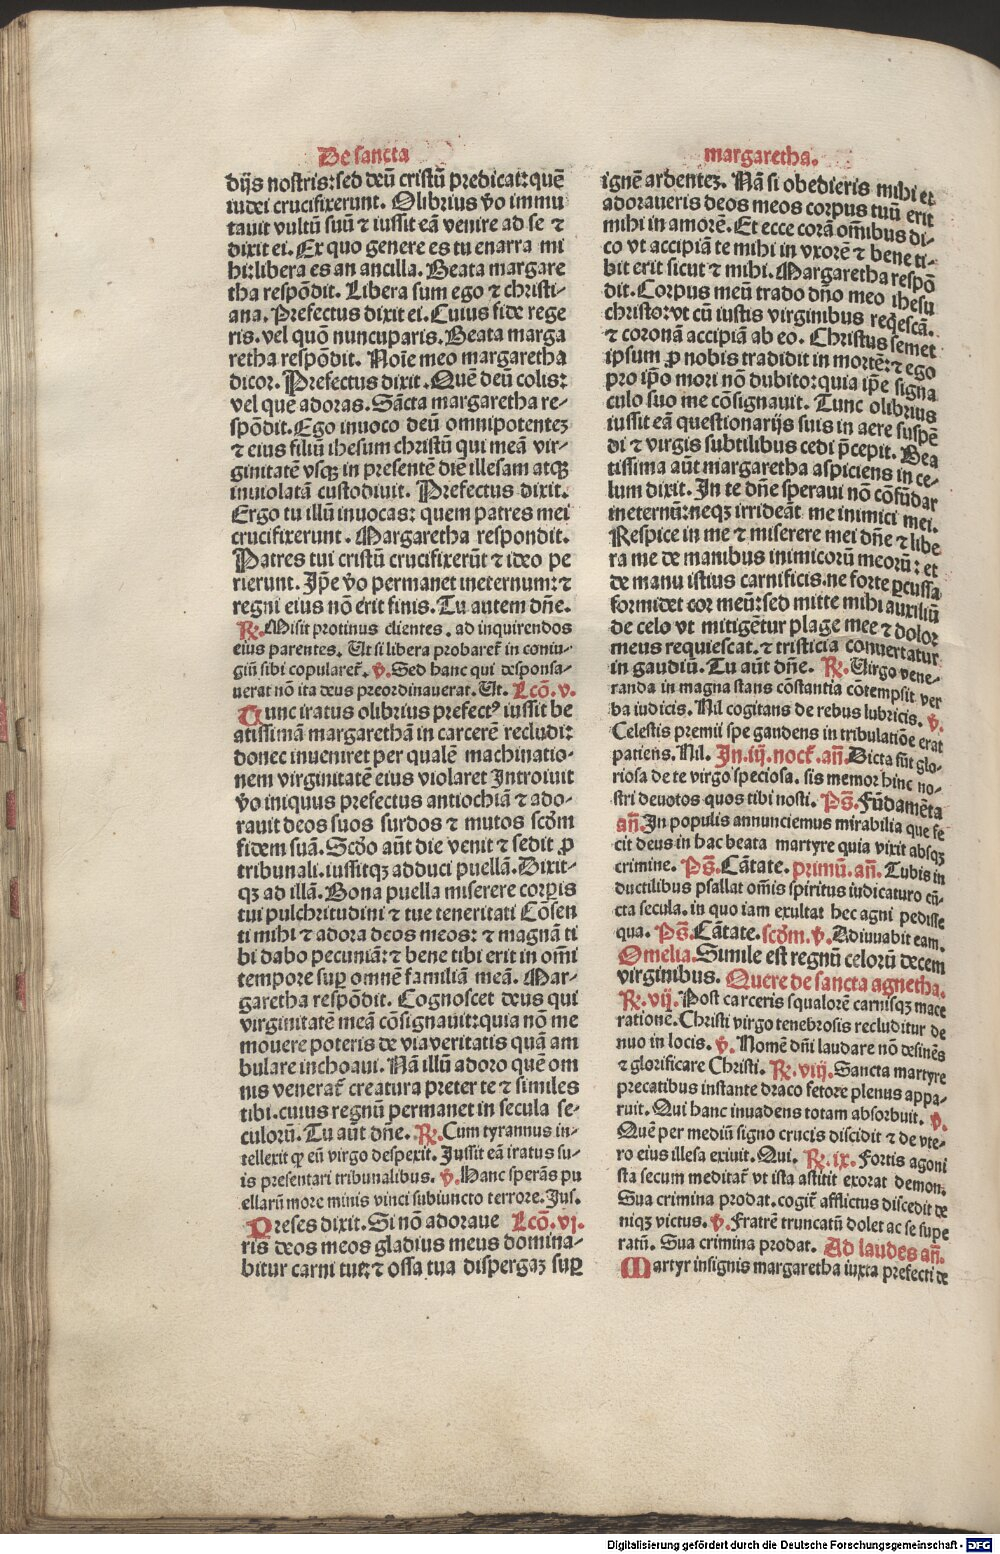 De sancta
dijs nostris: sed deū cristū predicat: quē
iudei crucifixerunt. Olibrius v̄o immu
tauit vultū suū ⁊ iussit eā venire ad se ⁊
dixit ei. Ex quo genere es tu enarra mi
hi: libera es an ancilla. Beata margare
tha respōdit. Libera sum ego ⁊ christi-
ana. Prefectus dixit ei. Cuius fide rege
ris. vel quō nuncuparis. Beata marga
retha respōdit. Noīe meo margaretha
dicor. Prefectus dixit. Quē deū colis:
vel que adoras. Sācta margaretha re-
spōdit. Ego inuoco deū omnipotentez
⁊ eius filiū ihesum christū qui meā vir-
ginitatē vsqꝫ in presentē diē illesam atqꝫ
inuiolatā custodiuit. Prefectus dixit.
Ergo tu illū inuocas: quem patres mei
crucifixerunt. Margaretha respondit.
Patres tui cristū crucifixerūt ⁊ ideo pe
rierunt. Ip̄e v̄o permanet ineternum: ⁊
regni eius nō erit finis. Tu autem dn̄e.
R̷. Misit protinus clientes. ad inquirendos
eius parentes. Ut si libera probaret̄ in coniu-
giū sibi copularet̄. v̄. Sed hanc qui desponsa-
uerat nō ita deus preordinauerat. Ut. Lcō. v.
Tunc iratus olibrius prefectꝰ iussit be
atissimā margarethā in carcerē recludi:
donec inueniret per qualē machinatio-
nem virginitatē eius violaret Introiuit
v̄o iniquus prefectus antiochiā ⁊ ado-
rauit deos suos surdos ⁊ mutos scd̄m
fidem suā. Scd̄o aūt die venit ⁊ sedit ꝓ
tribunali. iussitqꝫ adduci puellā. Dixit-
qꝫ ad illā. Bona puella miserere corꝑis
tui pulchritudini ⁊ tue teneritati Cōsen
ti mihi ⁊ adora deos meos: ⁊ magnā ti
bi dabo pecuniā: ⁊ bene tibi erit in om̄i
tempore suꝑ omnē familiā meā. Mar-
garetha respōdit. Cognoscet deus qui
virginitatē meā cōsignauit: quia nō me
mouere poteris de via veritatis quā am
bulare inchoaui. Nā illū adoro quē om
nis venerat̄ creatura preter te ⁊ similes
tibi. cuius regnū permanet in secula se-
culorū. Tu aūt dn̄e. R̷. Cum tyrannus in-
tellexit ꝙ eū virgo despexit. Jussit eā iratus su-
is presentari tribunalibus. v̄. Hanc sperās pu
ellarū more minis vinci subiuncto terrore. Jus.
Preses dixit. Si nō adoraue Lcō. vj.
ris deos meos gladius meus domina-
bitur carni tue: ⁊ ossa tua dispergaꝫ suꝑ
margaretha.
ignē ardentez. Nā si obedieris mihi et
adoraueris deos meos corpus tuū erit
mihi in amorē. Et ecce corā om̄ibus di-
co vt accipiā te mihi in vxorē ⁊ bene ti-
bit erit sicut ⁊ mihi. Margaretha respō
dit. Corpus meū trado dn̄o meo ihesu
christo: vt cū iustis virginibus req̄escā.
⁊ coronā accipiā ab eo. Christus semet
ipsum ꝓ nobis tradidit in mortē: ⁊ ego
pro ip̄o mori nō dubito: quia ip̄e signa
culo suo me cōsignauit. Tunc olibrius
iussit eā questionarijs suis in aere suspē
di ⁊ virgis subtilibus cedi p̄cepit. Bea
tissima aūt margaretha aspiciens in ce-
lum dixit. In te dn̄e speraui nō cōfūdar
ineternū: neqꝫ irrideāt me inimici mei.
Respice in me ⁊ miserere mei dn̄e ⁊ libe
ra me de manibus inimicorū meorū: et
de manu istius carnificis. ne forte ꝑcussa
formidet cor meū: sed mitte mihi auxiliū
de celo vt mitigētur plage mee ⁊ dolor
meus requiescat. ⁊ tristicia conuertatur
in gaudiū. Tu aūt dn̄e. R̷. Uirgo vene-
randa in magna stans cōstantia cōtempsit ver
ba iudicis. Nil cogitans de rebus lubricis. v̄.
Celestis premii spe gaudens in tribulatiōe erat
patiens. Nil. In. iij. noct̄. an̄. Dicta sūt glo-
riosa de te virgo speciosa. sis memor hinc no-
stri deuotos quos tibi nosti. Ps̄. Fūdamēta
an̄. In populis annunciemus mirabilia que fe
cit deus in hac beata martyre quia vixit absqꝫ
crimine. Ps̄. Cātate. primū. an̄. Tubis in
ductilibus psallat om̄is spiritus iudicaturo cū-
cta secula. in quo iam exultat hec agni pedisse
qua. Ps̄. Cātate. scd̄m. v̄. Adiuuabit eam.
Omelia. Simile est regnū celorū decem
virginibus. Quere de sancta agnetha.
R̷. vij. Post carceris squalorē carnisqꝫ mace
rationē. Christi virgo tenebrosis recluditur de
nuo in locis. v̄. Nomē dn̄i laudare nō desinēs
⁊ glorificare Christi. R̷. viij. Sancta martyre
precatibus instante draco fetore plenus appa-
ruit. Qui hanc inuadens totam absorbuit. v̄.
Quē per mediū signo crucis discidit ⁊ de vte-
ro eius illesa exiuit. Qui. R̷. ix. Fortis agoni
sta secum meditat̄ vt ista astitit exorat demon.
Sua crimina prodat. cogit̄ afflictus discedit de
niqꝫ victus. v̄. Fratrē truncatū dolet ac se supe
ratū. Sua crimina prodat. Ad laudes an̄.
Martyr insignis margaretha iuxta prefecti de
Digitalisierung gefördert durch die Deutsche Forschungsgemeinschaft - DFG